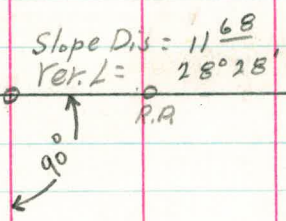 Slope Dis = 11 68
Ver. L = 28° 28'
P.P.
90°